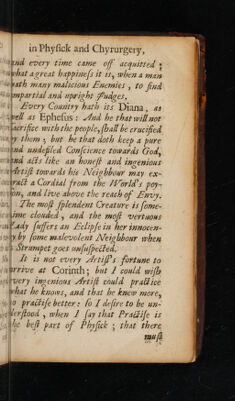 in Physick and Chyrurgery,
and every time came off acquitted;
what a great happiness it is, when a man
hath many malicious Enemies, to find
impartial and upright Judges.
Every Country hath its Diana, as
well as Ephesus: And he that will not
sacrifice with the people, shall be crucified
by them; but he that doth keep a pure
and undefiled Conscience towards God,
and acts like an honest and ingenious
Artist towards his Neighbour may ex-
tract a Cordial from the World's poy-
son, and live above the reach of Envy.
The most splendent Creature is some-
time clouded, and the most vertuous
Lady suffers an Eclipse in her innocen-
cy by some malevolent Neighbour when
a Strumpet goes unsuspected.
It is not every Artist's fortune to
arrive at Corinth; but I could wish
every ingenious Artist could practice
what he knows, and that he knew more,
to practise better: so I desire to be un-
derstood, when I say that Practise is
the best part of Physick; that there
must